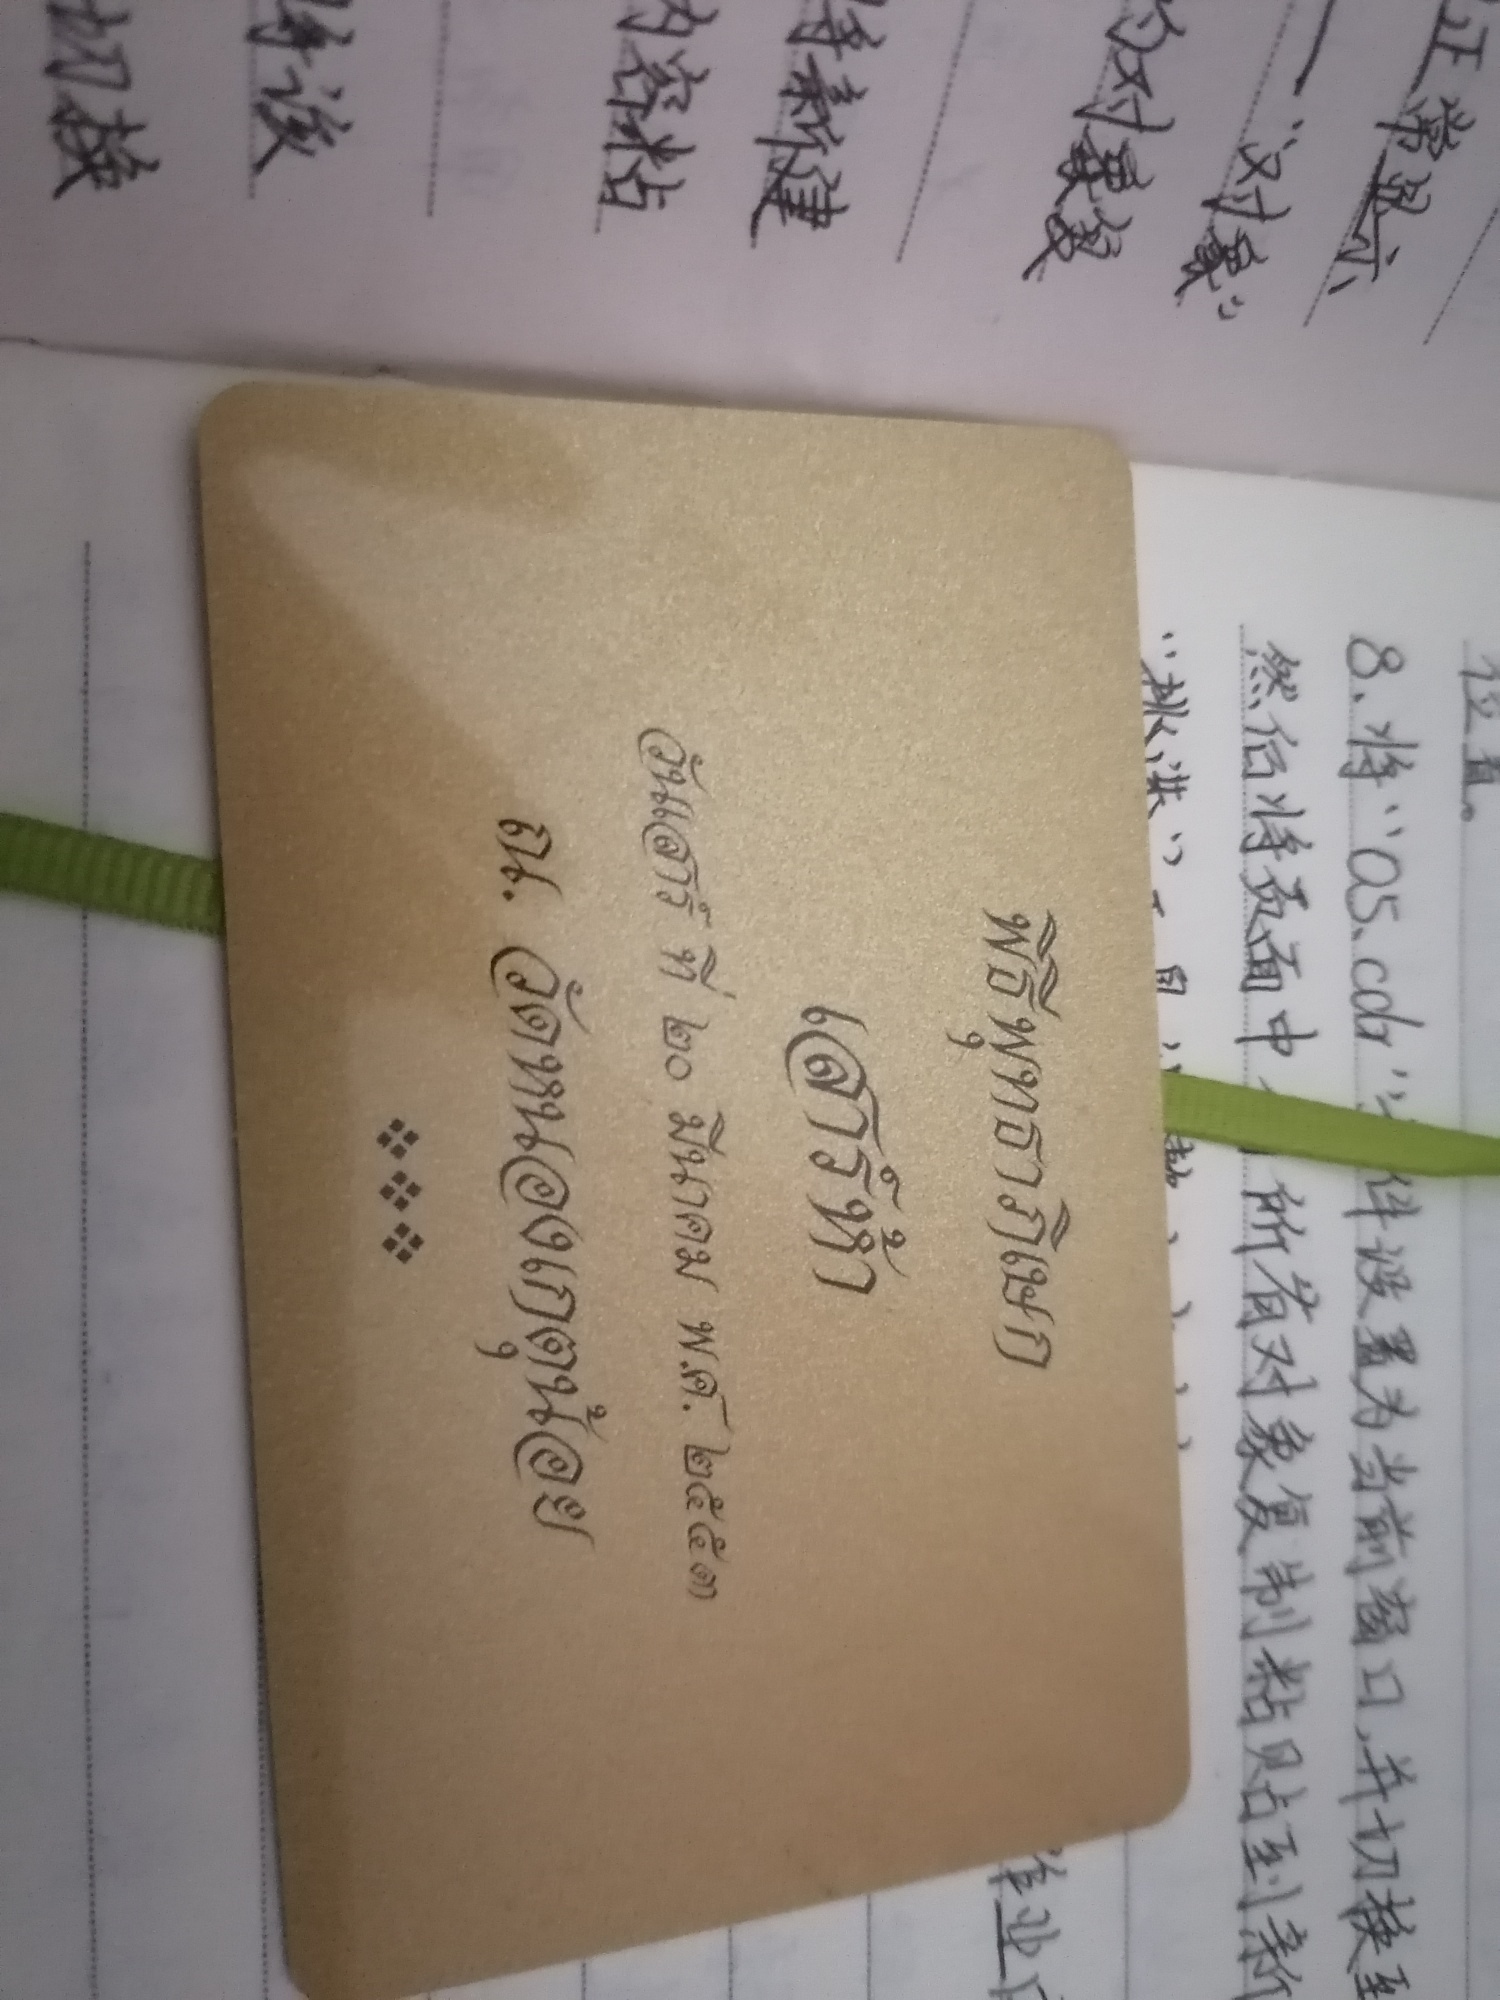 切换
将该
内容粘
将新建
的对象复
"对象"
正常显示
位置。
8.将"05.cdr"文件设置为当前窗口,并切换至
然后将页面中 所有对象复制粘贴至新
"挑选"工具
作业
พิธีพุทธาภิเษก
เสาร์ห้า
วันเสาร์ ที่ ๒๐ มีนาคม พ.ศ. ๒๕๕๓
ณ. วัดหนองเกตุน้อย